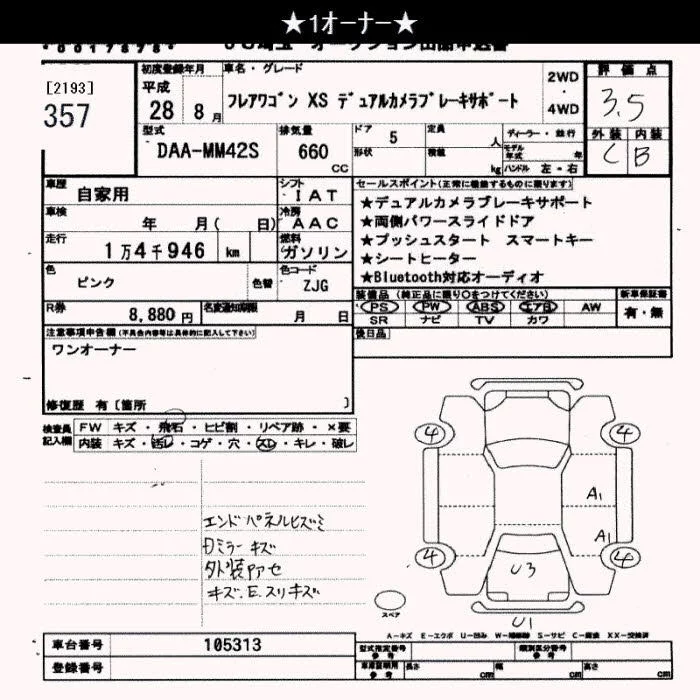 ★1オーナー★
[2193]
357
初度登録年月
平成
28 8月
車名・グレード
フレアワゴン XS デュアルカメラブレーキサポート
2WD
・
4WD
評価点
3.5
外装 内装
C B
型式
DAA-MM42S
排気量
660
CC
ドア 5
形状
定員 人
積載 kg
ディーラー・並行
モデル年式 年
ハンドル 左・右
車歴
自家用
シフト
IAT
車検
年 月( 日)
冷房
AAC
走行
1万4千946 km
燃料
ガソリン
色
ピンク
色替
色コード
ZJG
R券
8,880円
名変通知期限
月 日
セールスポイント(正常に機能するものに限ります)
★デュアルカメラブレーキサポート
★両側パワースライドドア
★プッシュスタート スマートキー
★シートヒーター
★Bluetooth対応オーディオ
装備品 (純正品に限り○をつけてください)
PS PW ABS エアB AW
SR ナビ TV カワ
新車保証書
有・無
後日品
注意事項申告欄(不具合内容等は具体的に記入して下さい)
ワンオーナー
修復歴 有〔箇所 〕
検査員
記入欄
FW キズ・飛石・ヒビ割・リペア跡・×要
内装 キズ・汚レ・コゲ・穴・スレ・キレ・破レ
エンドパネルヒズミ
日ミラーキズ
外装アセ
キズ.E.スリキズ
4 4
A1
A1
4 4
U3
U1
スペア
A-キズ E-エクボ U-凹み W-補修跡 S-サビ C-腐食 XX-交換済
車台番号 105313
登録番号
型式指定番号
参考
類別区分番号
参考
車庫証明用
参考
長さ cm 幅 cm 高さ cm